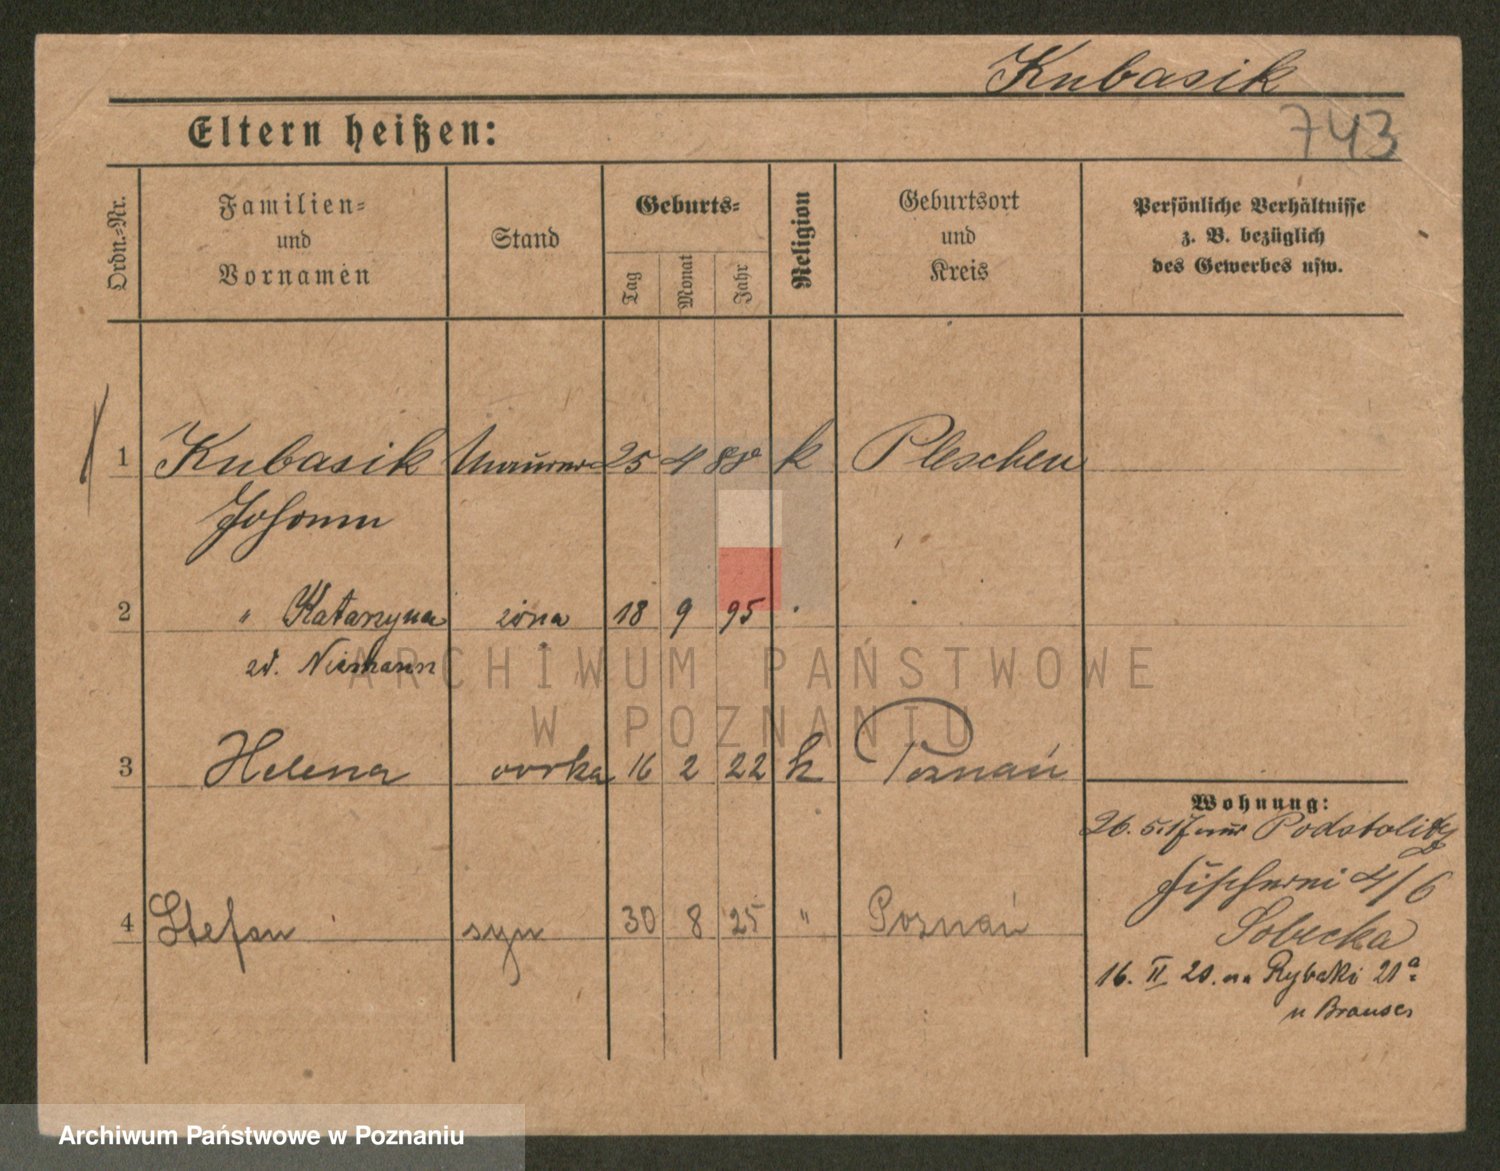 Kubasik
743
Eltern heißen:
Ordn.-Nr.
Familien- und Vornamen
Stand
Geburts-
Tag
Monat
Jahr
Religion
Geburtsort und Kreis
Persönliche Verhältnisse
z. B. bezüglich
des Gewerbes usw.
1 Kubasik Maurer 25 4 88 k Pleschen
Johann
2 " Katarzyna żona 18 9 95
zd. Niemann
3 Helena córka 16 2 22 k Poznań
Wohnung:
26. 5. 17 Podstolitz
Fischerei 4/6
4 Stefan syn 30 8 25 " Poznań
Sobecka
16. II 20. na Rybaki 21a
u Brauser
ARCHIWUM PAŃSTWOWE
W POZNANIU
Archiwum Państwowe w Poznaniu